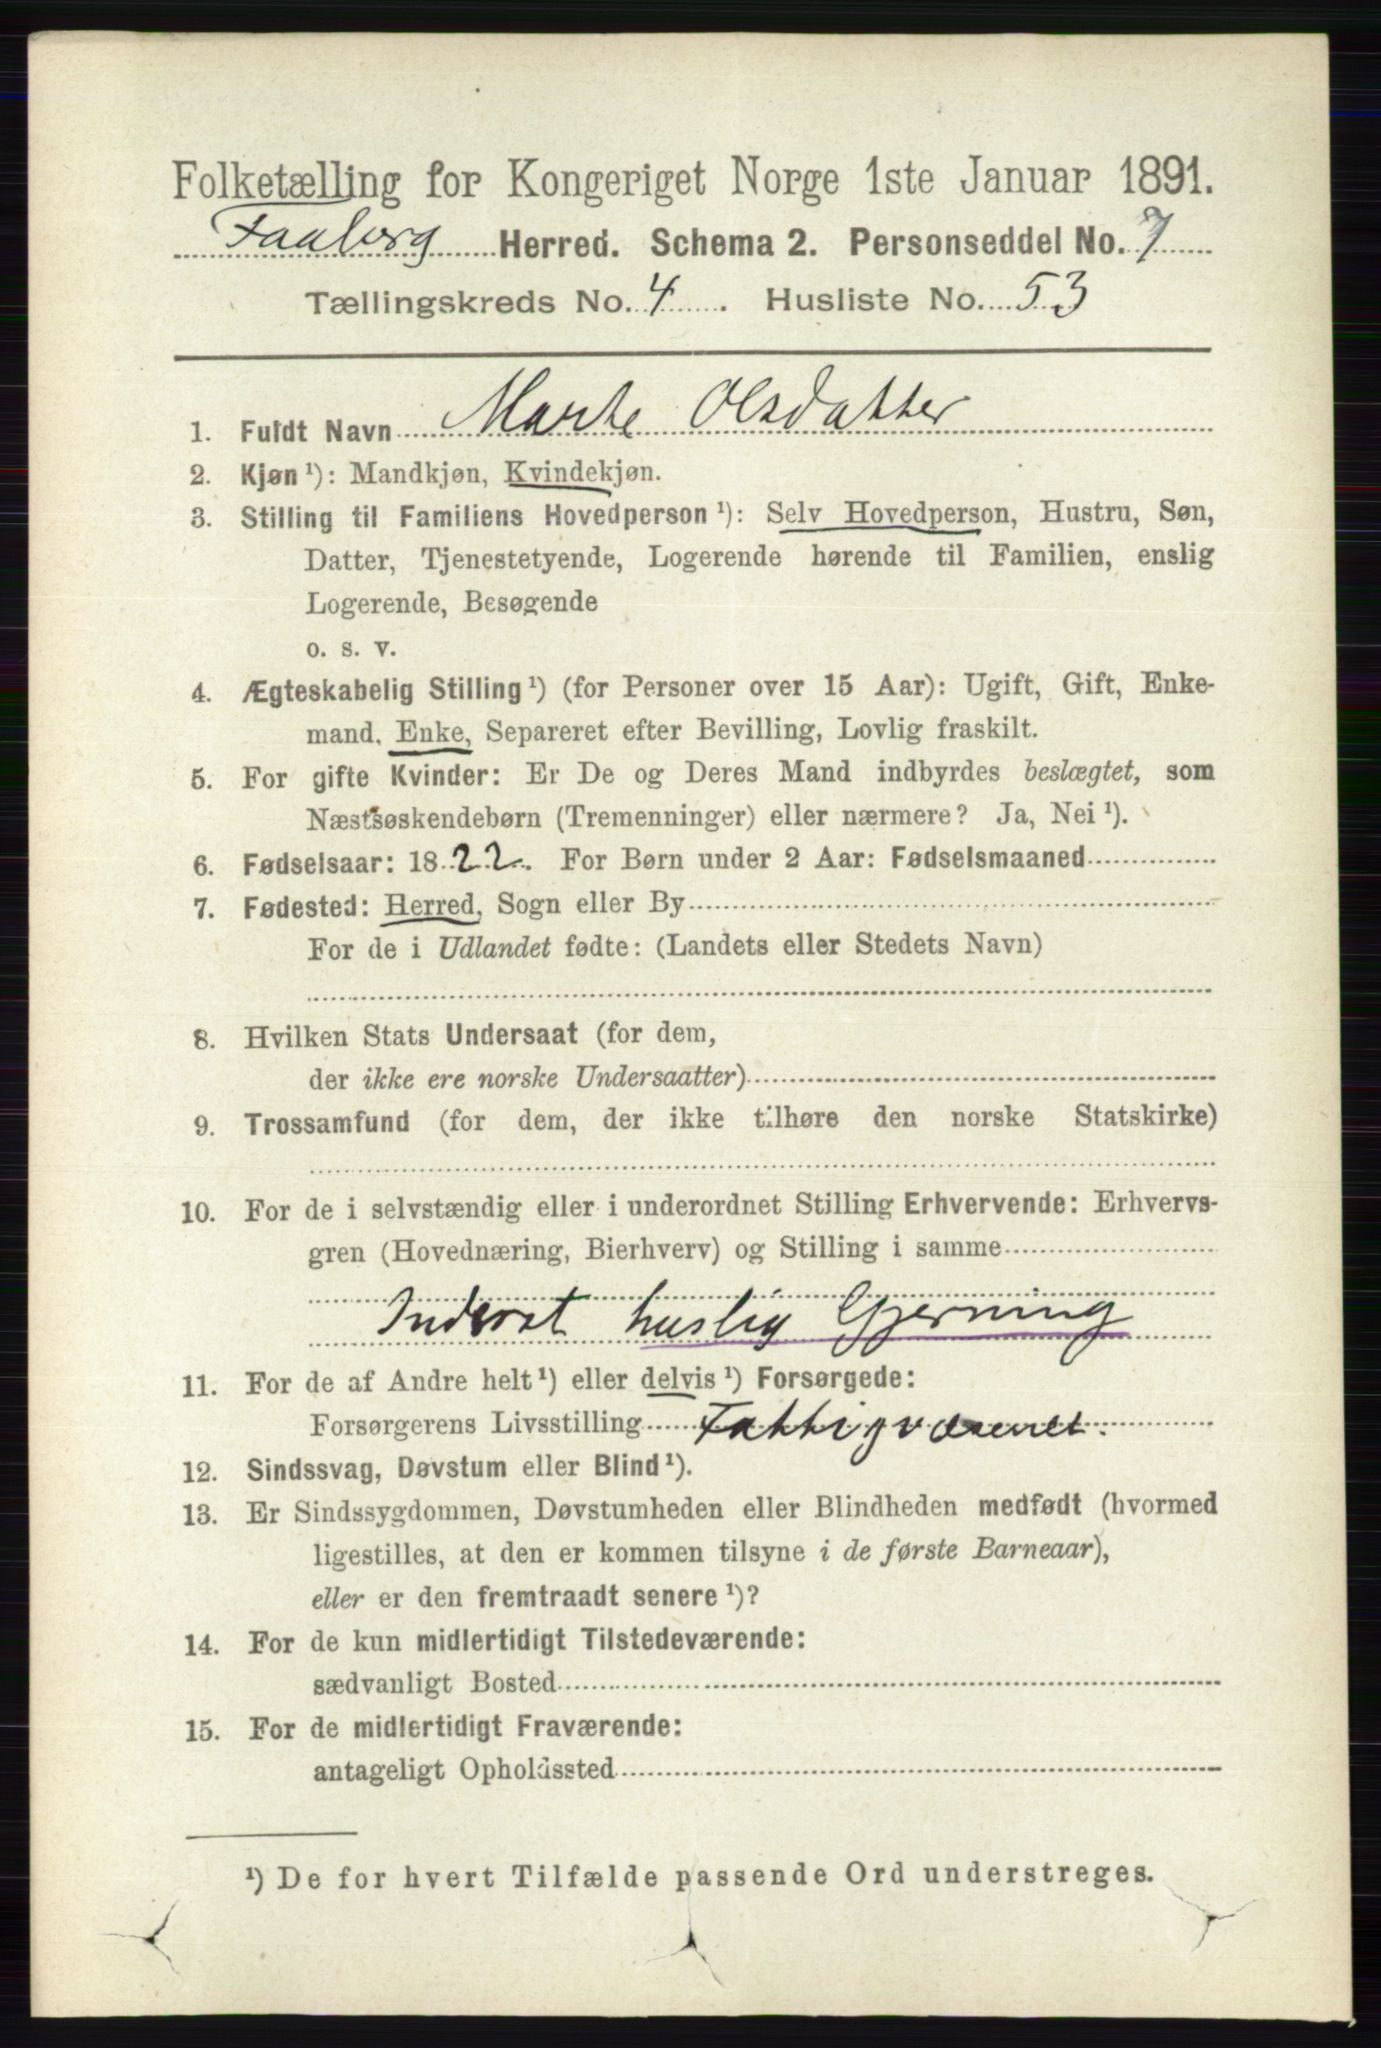 Folketælling for Kongeriget Norge 1ste Januar 1891.
Faaberg Herred. Schema 2. Personseddel No. 7
Tællingskreds No. 4. Husliste No. 53
1. Fuldt Navn Marte Olsdatter
2. Kjøn ¹): Mandkjøn, Kvindekjøn.
3. Stilling til Familiens Hovedperson ¹): Selv Hovedperson, Hustru, Søn,
Datter, Tjenestetyende, Logerende hørende til Familien, enslig
Logerende, Besøgende
o. s. v.
4. Ægteskabelig Stilling ¹) (for Personer over 15 Aar): Ugift, Gift, Enke-
mand, Enke, Separeret efter Bevilling, Lovlig fraskilt.
5. For gifte Kvinder: Er De og Deres Mand indbyrdes beslægtet, som
Næstsøskendebørn (Tremenninger) eller nærmere? Ja, Nei ¹).
6. Fødselsaar: 1822. For Børn under 2 Aar: Fødselsmaaned
7. Fødested: Herred, Sogn eller By
For de i Udlandet fødte: (Landets eller Stedets Navn)
8. Hvilken Stats Undersaat (for dem,
der ikke ere norske Undersaatter)
9. Trossamfund (for dem, der ikke tilhøre den norske Statskirke)
10. For de i selvstændig eller i underordnet Stilling Erhvervende: Erhvervs-
gren (Hovednæring, Bierhverv) og Stilling i samme
huslig Gjerning
11. For de af Andre helt ¹) eller delvis ¹) Forsørgede:
Forsørgerens Livsstilling Fattigvæsenet.
12. Sindssvag, Døvstum eller Blind ¹).
13. Er Sindssygdommen, Døvstumheden eller Blindheden medfødt (hvormed
ligestilles, at den er kommen tilsyne i de første Barneaar),
eller er den fremtraadt senere ¹)?
14. For de kun midlertidigt Tilstedeværende:
sædvanligt Bosted
15. For de midlertidigt Fraværende:
antageligt Opholdssted
¹) De for hvert Tilfælde passende Ord understreges.